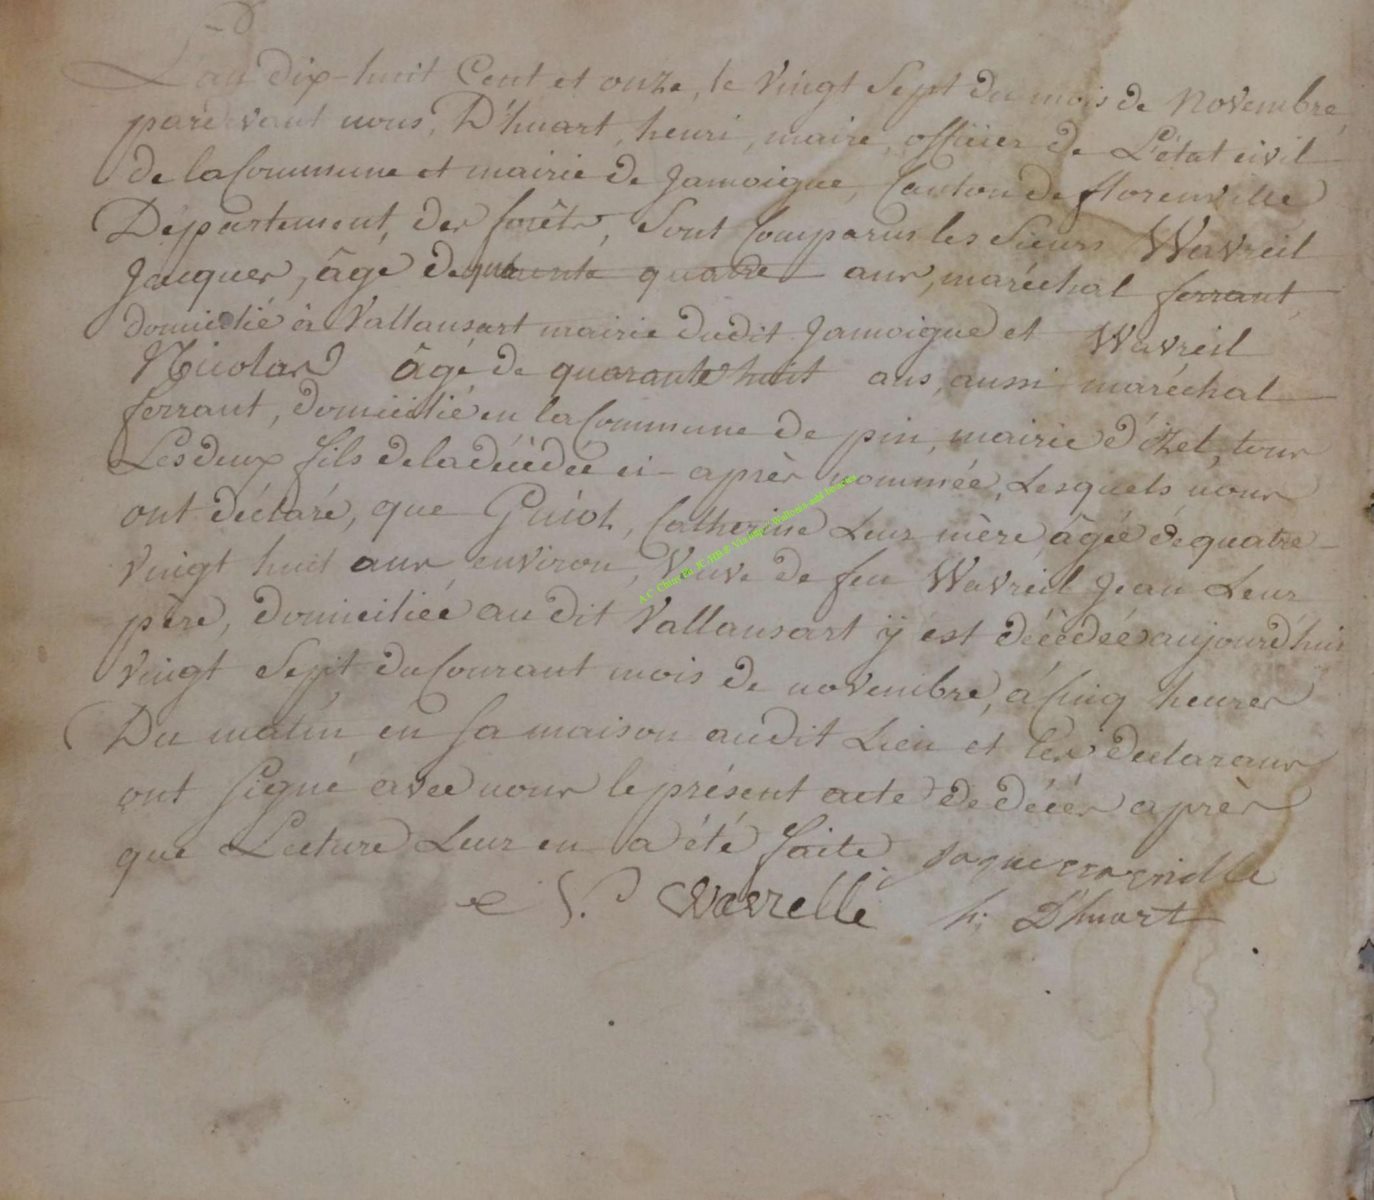 L'an dix-huit Cent et onze, le vingt Sept du mois de Novembre,
pardevant nous, D'huart, henri, maire, officier de L'état civil
de la Commune et mairie de Jamoigne, Canton de florenville
Département des forêts, Sont Comparus les Sieurs Wavreil
Jacques, âgé de quarante quatre ans, maréchal ferrant
domicilié à Vallansart mairie dudit Jamoigne et Wavreil
Nicolas âgé de quarante huit ans, aussi maréchal
ferrant, domicilié en la Commune de pin, mairie d'izel, tous
Les deux fils de la décédée ci-après nommée, Lesquels nous
ont déclaré, que Guiot, Catherine Leur mère, âgée de quatre-
vingt huit ans environ, Veuve de feu Wavreil Jean Leur
père, domiciliée au dit Vallansart ÿ est décédée aujourd'hui
vingt Sept du Courant mois de novembre, à Cinq heures
Du matin en Sa maison audit Lieu et les declarans
ont Signé avec nous le présent acte de décés après
que Lecture Leur en a été faite.
N. wavrellé h: D'huart